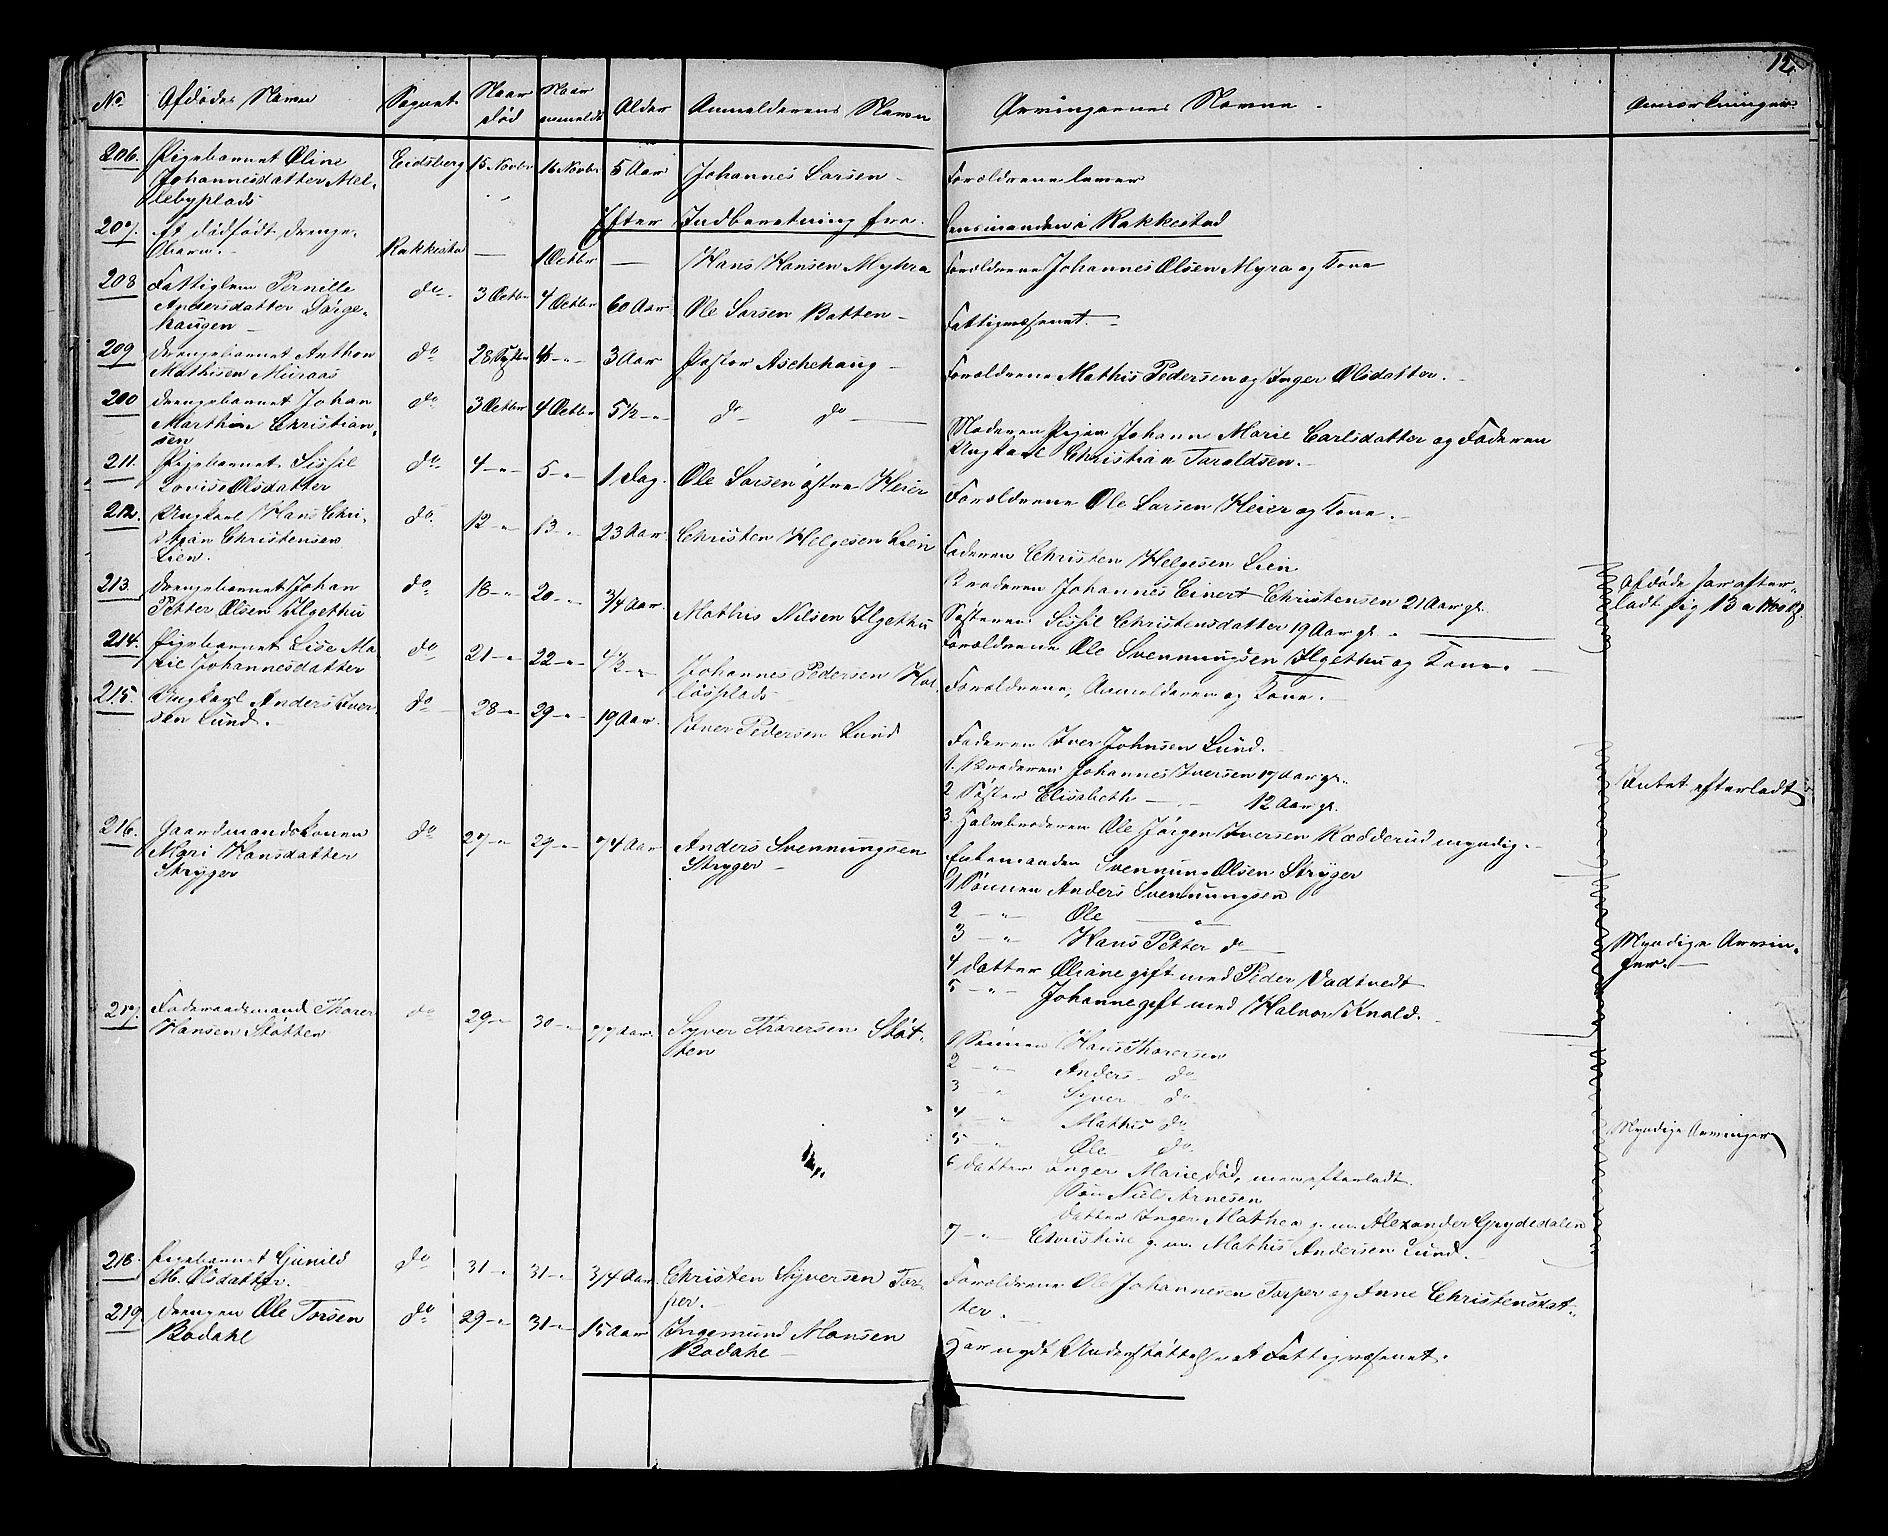 12
No. Afdødes Navn Sognet Naar død Naar anmeldt Alder Anmelderens Navn Arvingernes Navne. Anmærkninger
206. Pigebarnet Oline Eidsberg 15 Novbr 16 Novbr 5 Aar Johannes Larsen Forældrene lever
Johannesdatter Mel-
lebyplads
Efter Indberetning fra Lensmanden i Rakkestad
207. Et dødfødt Drenge- Rakkestad — 1 Octbr — Hans Hansen Myhra Forældrene Johannes Olsen Myra og Kone
barn.
208 Fattiglem Pernille do. 3 Octbr 4 Octbr 60 Aar Ole Larsen Batten Fattigvæsenet.
Andersdatter Dørge-
haugen
209 Drengebarnet Anthon do 28 Septbr 4 - " - 3 Aar Pastor Aschehaug Forældrene Mathis Pedersen og Inger Olsdatter.
Mathisen Muraas
200 Drengebarnet Johan do 3 Octbr 4 Octbr 5 1/2 - " do do Moderen Pigen Johann Marie Carlsdatter og Faderen
Marthin Christian- Ungkarl Christian Taraldsen.
sen
211. Pigebarnet Sissil do. 4 - " 5 - " 1 Dag. Ole Larsen østre Heier Forældrene Ole Larsen Heier og Kone.
Lovise Olsdatter
212. Ungkarl Hans Chri- do. 12 - " 13 - " 23 Aar Christen Helgesen Lien Faderen Christen Helgesen Lien
stian Christensen Broderen Johannes Einert Christensen 21 Aar gl. Afdøde har efter-
Lien. Søsteren Sissil Christensdatter 19 Aar gl. ladt sig
213. Drengebarnet Johan do 18 - " 20 - " 3/4 Aar. Mathis Nilsen Ilgethu Forældrene Ole Svennungsen Ilgethu og Kone.
Petter Olsen Ilgethu
214. Pigebarnet Lise Ma do 21 - " 22 - " 4 1/2 - " Johannes Pedersen Forældrene, Anmelderen og Kone.
rie Johannesdatter
215. Ungkarl Anders Iver- do 28 - " 29 - " 19 Aar. Iver Pedersen Lund Faderen Iver Johnsen Lund.
sen Lund.
1. Broderen Johannes Iversen 17 Aar gl.
2 Søster Elisabeth — 12 Aar gl. Intet efterladt
3. Halvbroderen Ole Jørgen Iversen Rædderud myndig.
216. Gaardmandskonen do 27 - " 29 - " 74 Aar Anders Svennungsen Enkemanden Svennung Olsen Stryger
Mari Hansdatter Stryger 1 Sønnen Anders Svennungsen
Stryger 2 - " Ole — " —
3 - " Hans Petter do Myndige Arvin-
4 Datter Oliane gift med Peder Vadtvedt ger.
5 - " Johanne gift med Halvor Knold.
217. Føderaadsmand Thorer do 29 - " 30 - " 77 Aar. Syver Thorersen Støt- 1 Sønnen Hans Thorersen
Hansen Støtten ten 2 - " Anders do
3 - " Syver do.
4 - " Mathis do Myndige Arvinger
5 - " Ole do.
6 Datter Inger Marie død, men efterladt.
Søn Niels Arnesen
Datter Inger Mathea g. m. Alexander Grydedalen
7 - " Christine g. m. Mathis Andersen Lund.
218. Pigebarnet Gunild do 31 - " 31 - " 3/4 Aar Christen Syversen Tor- Forældrene Ole Johannesen Torper og Anne Christensdat-
M. Olsdatter. per. ter.
219. Drengen Ole Torsen do 29 - " 31 - " 15 Aar Ingemund Monsen Har nydt Understøttelse af Fattigvæsenet.
Bødahl Bodahl